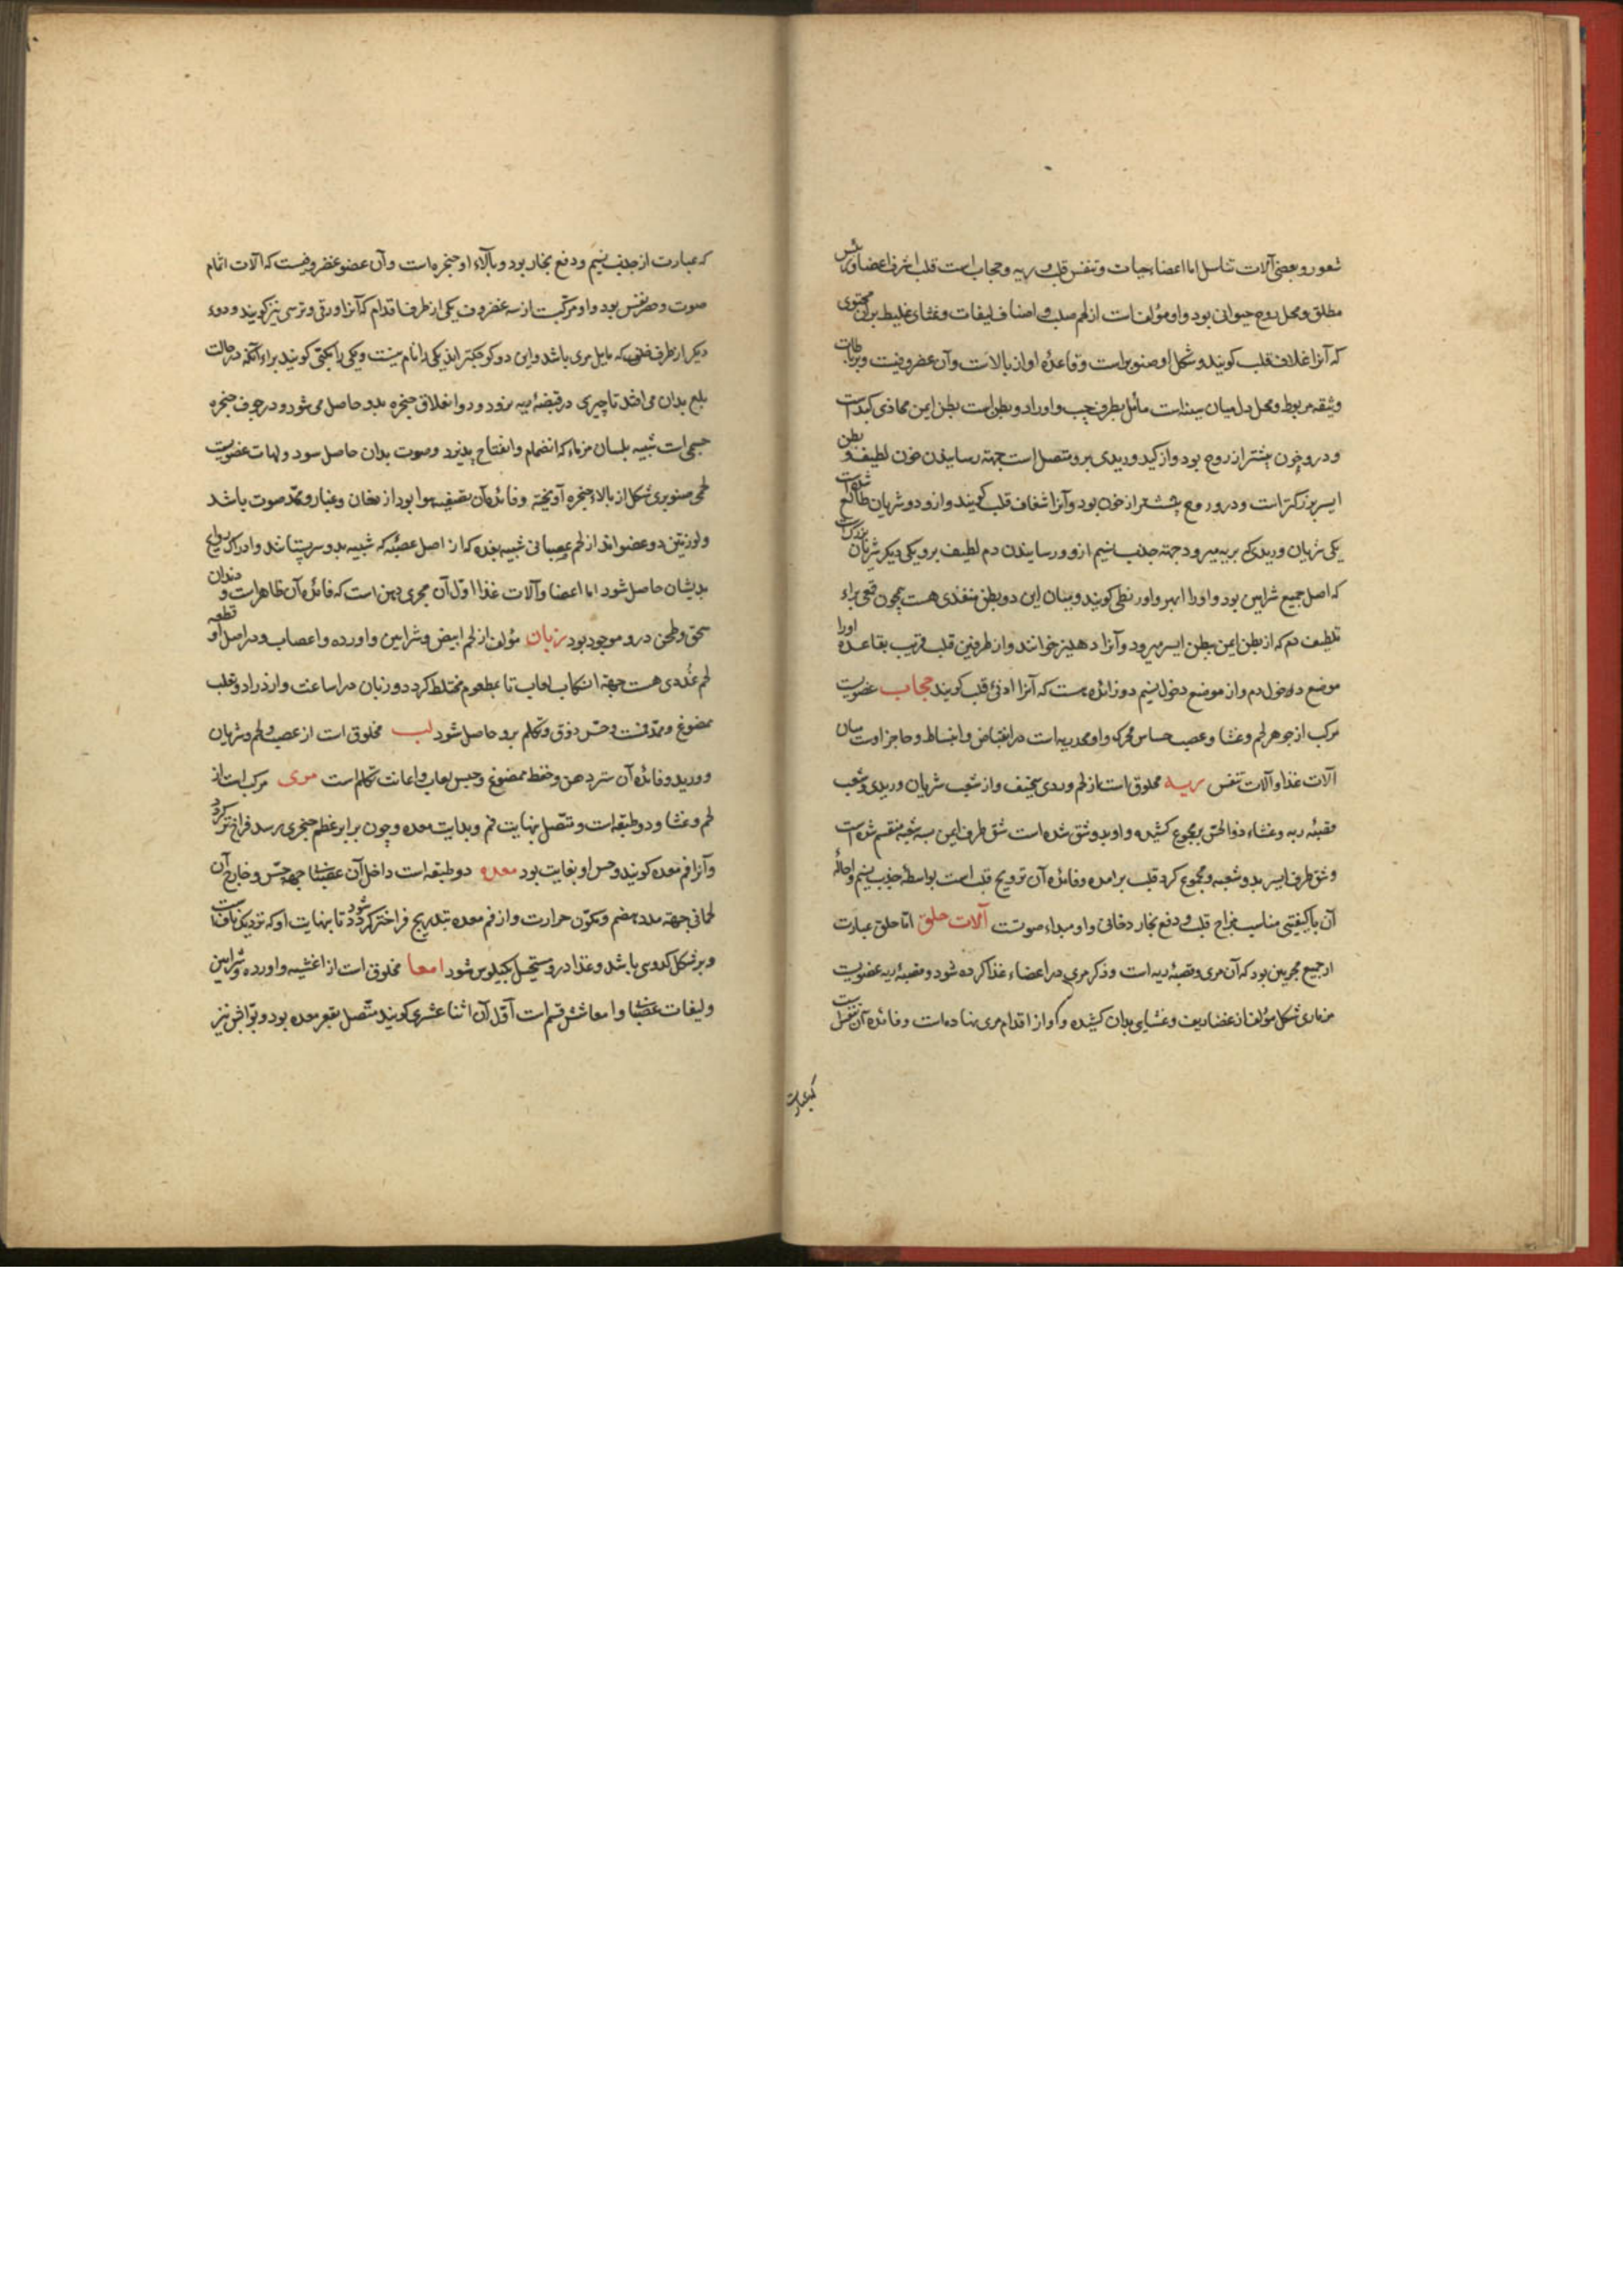 شعور و بعضی آلات تناسل اما اعضاء حیات و تنفس قلب و ریه و حجاب است قلب اشرف اعضا و رئیس
مطلق و محل روح حیوانی بود و او مؤلف است از لحم صلب و اصناف لیفات و غشای غلیظ بر آن محتوی
که آنرا غلاف قلب کویند و شکل او صنوبریست و قاعدهٔ او از بالاست و آن غضروفیست و برباطات
وثیقه مربوط و محل دل میان سینه است مائل بطرف چپ و او را دو بطن است بطن ایمن محاذی کبد است
و درو خون بیشتر از روح بود و از کبد وریدی برو متصل است جهة رسانیدن خون لطیف و بطن
ایسر بزرکتر است و درو روح بیشتر از خون بود و آنرا شغاف قلب کویند و ازو دو شریان طالع شده است
یکی شریان وریدی که بریه میرود جهة جذب نسیم ازو و رسانیدن دم لطیف برو و یکی دیکر شریان بزرک است
که اصل جمیع شرایین بود و او را ابهر و اورنطی کویند و میان این دو بطن منفذی هست همچون قمعی برای
تلطیف دم که از بطن ایمن ببطن ایسر میرود و آنرا دهلیز خوانند و از طرفین قلب قریب بقاعده او را
موضع دخول دم و از موضع دخول نسیم دو زائده هست که آنرا اذنی قلب کویند حجاب عضویست
مرکب از جوهر لحم و غشا و عصب حساس محرک و او ممد ریه است در انقباض و انبساط و حاجز اوست میان
آلات غذا و آلات تنفس ریه مخلوق است از لحم وردی سخیف و از شعب شریان وریدی و شعب
قصبهٔ ریه و غشاء ذو الحس بر مجموع کشیده و او بدو شق شده است شق طرف ایمن بسه شعبه منقسم شده است
و شق طرف ایسر بدو شعبه و مجموع کرد قلب برامده و فائدهٔ آن ترویح قلب است بواسطهٔ جذب نسیم و احالهٔ
آن با کیفیتی مناسب مزاج قلب و دفع بخار دخانی و او مبداء صوتست آلات حلق اما حلق عبارت
از جمیع مجریین بود که آن مری و قصبهٔ ریه است و ذکر مری در اعضاء غذا کرده شود و قصبهٔ ریه عضویست
مزماری شکل مؤلف از غضاریف و غشایی بدان کشیده و او از اقدام مری نهاده است و فائدهٔ آن تنفس است
که عبارت
که عبارت از جذب نسیم و دفع بخار بود و بالاء او حنجره است و آن عضو غضروفیست که آلات اتمام
صوت و حصر نفس بود و او مرکبست از سه غضروف یکی از طرف اقدام که آنرا ورقی و ترسی نیز کویند و دوء
دیکر از طرف خلفی که مایل مری باشد و این دو کوچکتر اند یکی را نام نیست و یکی را مکبی کویند برای آنکه در حالت
بلع بدان می افتد تا چیزی در قصبهٔ ریه نرود و دوا نغلاق حنجره بدو حاصل می شود و در جوف حنجره
جسمی است شبیه بلسان مزمار که انضمام و انفتاح پذیرد و صوت بدان حاصل سود و لهات عضویست
لحمی صنوبری شکل از بالاء حنجره آویخته و فائدهٔ آن تصفیهٔ هوا بود از دخان و غبار و ممد صوت باشد
و لوزتین دو عضو اند از لحم عصبانی شبیه بغده که از اصل عصبه که شبیه بدو سر پستانند و ادراک روایح
بدیشان حاصل شود اما اعضا و آلات غذا اول آن مجری دهن است که فائدهٔ آن ظاهر است و دندان
سحق و طحن درو موجود بود زبان مؤلف از لحم ابیض و شرایین و اورده و اعصاب و در اصل او قطعه
لحم غددی هست جهة انسکاب لعاب تا بمطعوم مختلط کردد و زبان در اساغت و ازدراد و تقلب
ممضوغ ممدست و حس ذوق و تکلم برو حاصل شود لب مخلوق است از عصب و لحم و شریان
و ورید و فائده آن ستر دهن و حفظ ممضوغ و حبس لعاب و اعانت تکلم است مری مرکب است از
لحم و غشا و دو طبقه است و متصل بنهایت فم و بدایت معده و چون برابر عظم حنجری رسد فراخ تر کردد
و آنرا فم معده کویند و حس او بغایت بود معده دو طبقه است داخل آن عصبانی جهة حس و خارج آن
لحمانی جهة مدد هضم و تکون حرارت و از فم معده بتدریج فراختر شود تا بنهایت او که نزدیک نافست
و بر شکل کدوی باشد و غذا درو مستحیل بکیلوس شود امعا مخلوق است از اغشیه و اورده و شرایین
و لیفات عصبانی و امعا شش قسم است اول آن اثنا عشری کویند متصل بقعر معده بود و بواب نیز